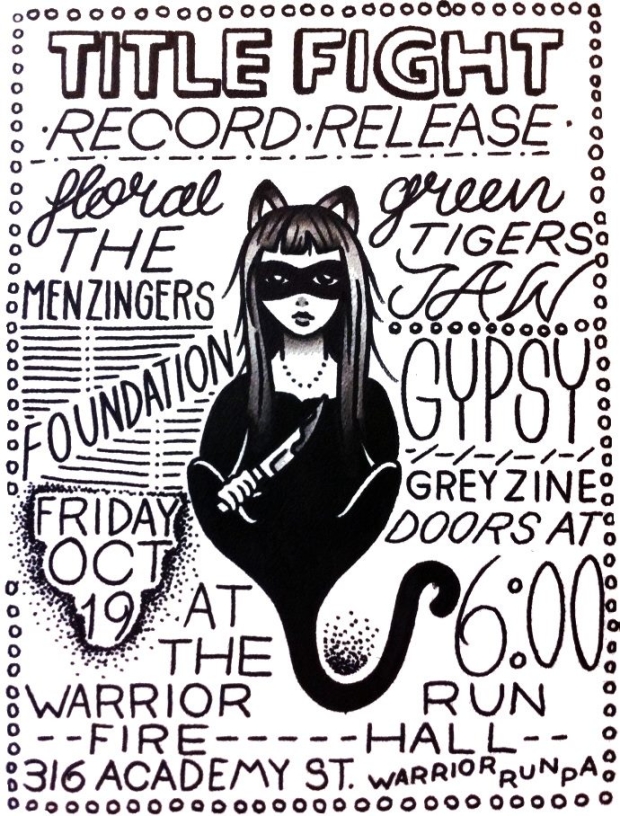 TITLE FIGHT
·RECORD·RELEASE·
floral green
THE
MENZINGERS
TIGERS
JAW
FOUNDATION
GYPSY
GREY ZINE
DOORS AT
6:00
FRIDAY
OCT
19
AT
THE
WARRIOR RUN
--FIRE-----HALL--
316 ACADEMY ST. WARRIOR RUN PA